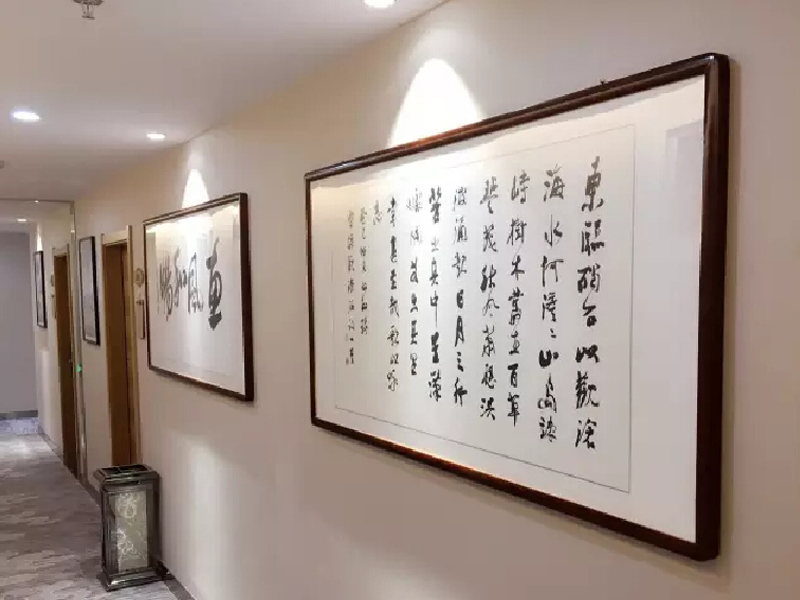 東臨碣石以觀滄
海水何澹〻山島竦
峙樹木叢生百草
豐茂秋風蕭瑟洪
波涌起日月之行
若出其中星漢
燦爛若出其里
幸甚至哉歌以咏
志
惠風和暢